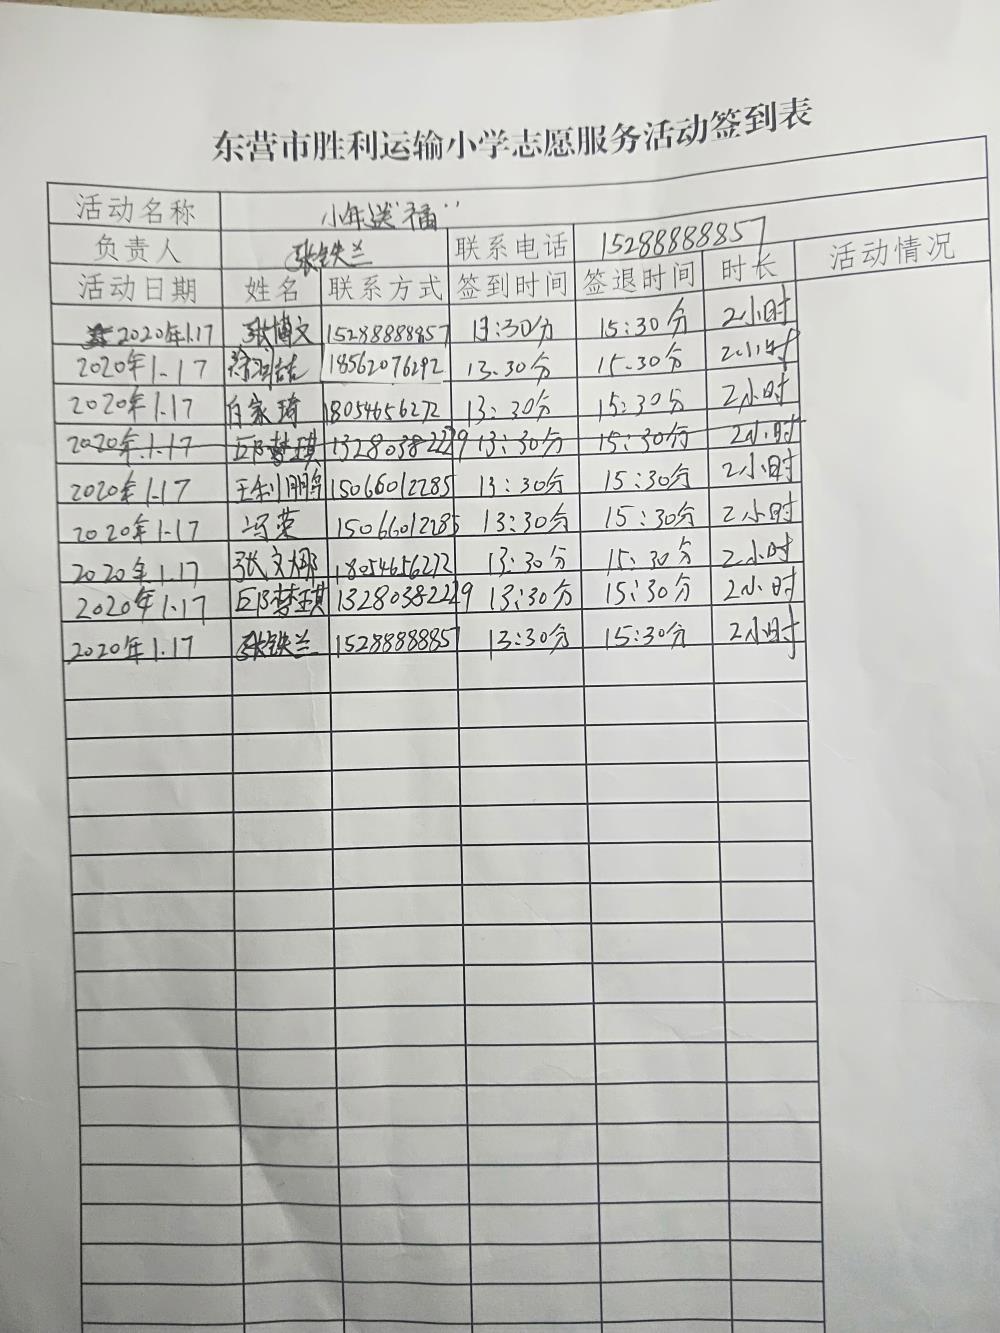 东营市胜利运输小学志愿服务活动签到表
活动名称 小年送"福"
负责人 张铁兰 联系电话 15288888857
活动日期 姓名 联系方式 签到时间 签退时间 时长 活动情况
2020年1.17 张博文 15288888857 13:30分 15:30分 2小时
2020年1.17 18562076292 13.30分 15.30分 2小时
2020年1.17 白家琦 18054656272 13:30分 15:30分 2小时
2020年.1.17 邱梦琪 13280382229 13:30分 15:30分 2小时
2020年1-17 王利鹏 15066012285 13:30分 15:30分 2小时
2020年1-17 冯荣 15066012285 13:30分 15:30分 2小时
2020年.1.17 张文娜 18054656272 13:30分 15:30分 2小时
2020年1.17 邱梦琪 13280382229 13:30分 15:30分 2小时
2020年1.17 张铁兰 15288888857 13:30分 15:30分 2小时